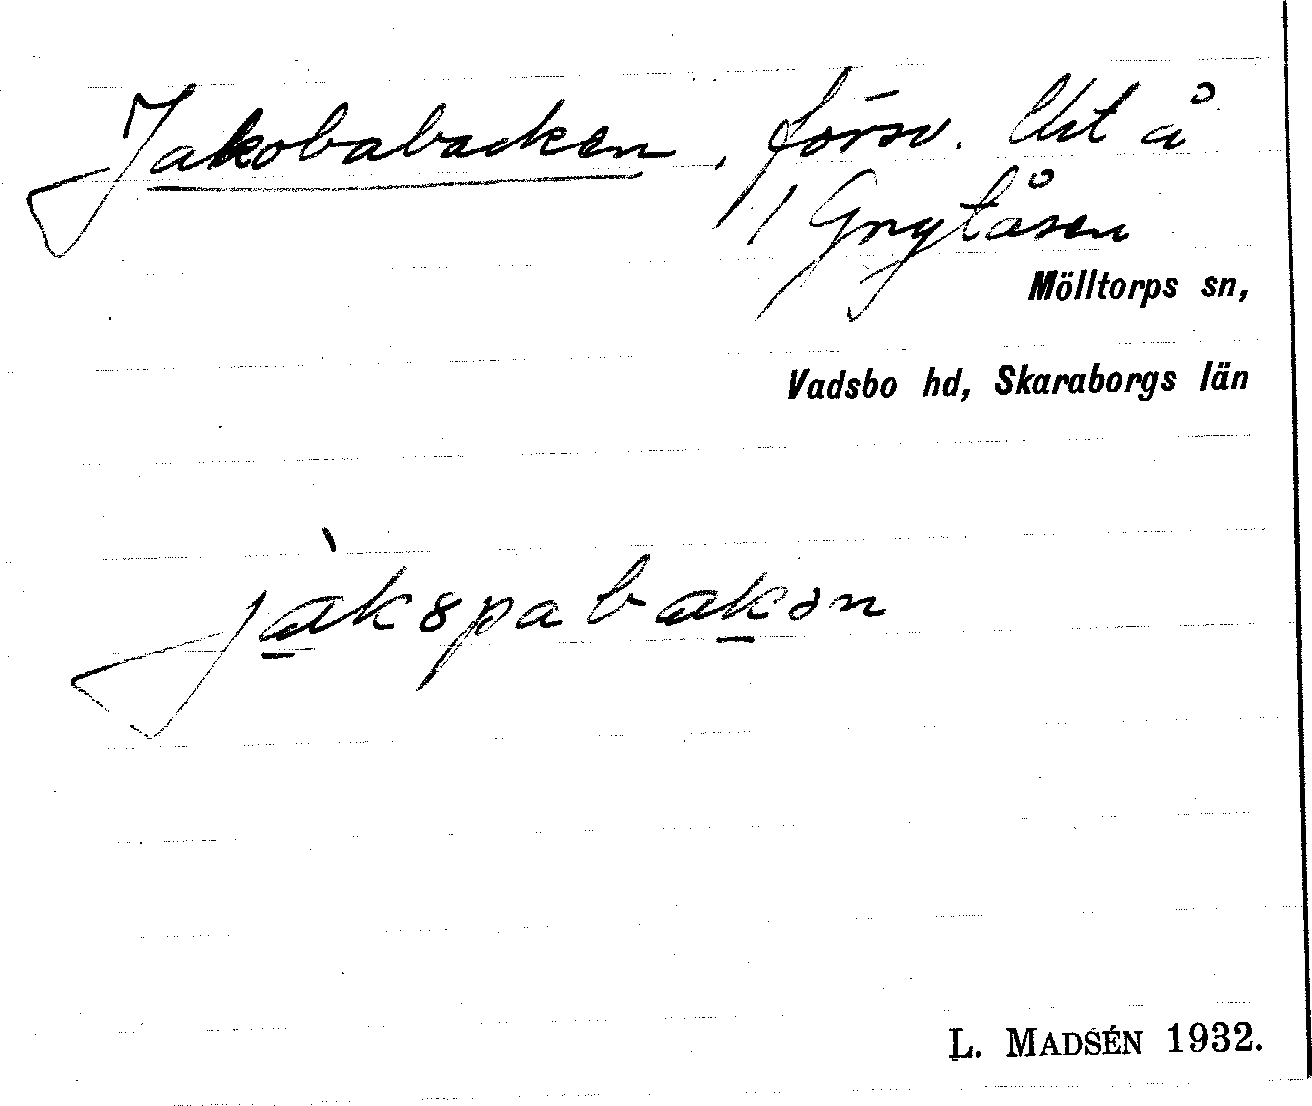 Jakobabacken, försv. lht å
1 Grytåsen
Mölltorps sn,
Vadsbo hd, Skaraborgs län
jàkspabakən
L. MADSÉN 1932.